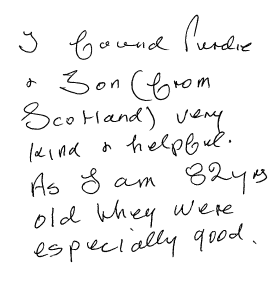 I found Purdie
& Son (from
Scotland) very
kind & helpful.
As I am 82yrs
old they were
especially good.